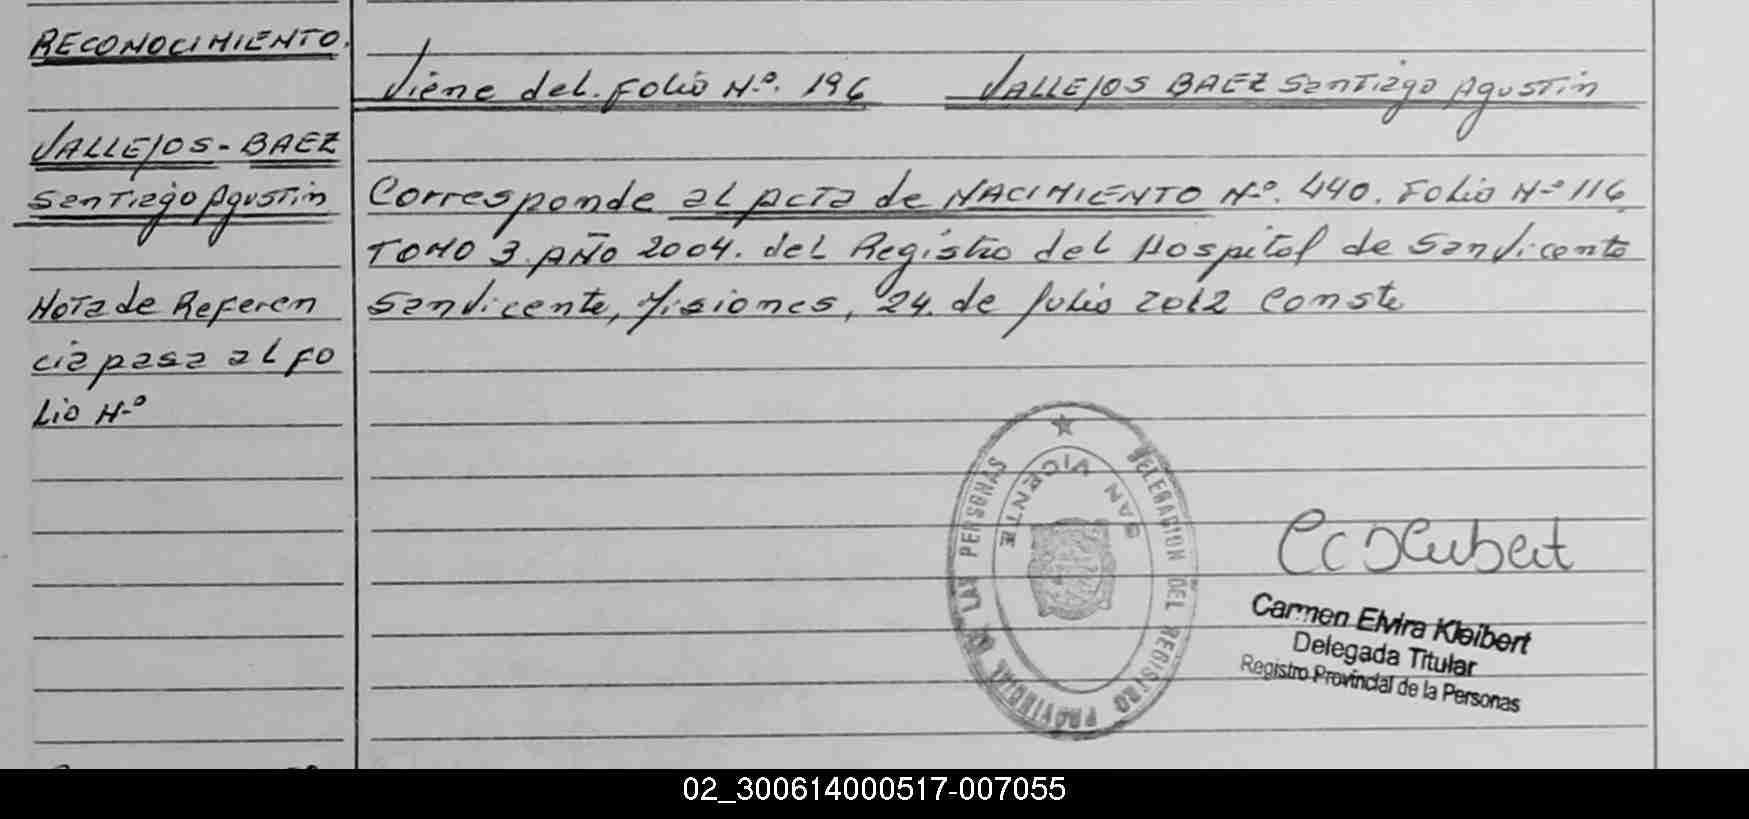 RECONOCIMIENTO.
Viene del. Folio Nº. 196 VALLEJOS BAEZ Santiago Agustin
VALLEJOS - BAEZ
Santiago Agustin
Corresponde al Acta de NACIMIENTO Nº. 440. Folio Nº 116
TOMO 3. AÑO 2004. del Registro del Hospital de San Vicente
San Vicente, Misiones, 24. de Julio 2012 Conste
Nota de Referen
cia pasa al Fo
lio Nº
DELEGACION DEL REGISTRO PROVINCIAL DE LAS PERSONAS
SAN VICENTE
Carmen Elvira Kleibert
Delegada Titular
Registro Provincial de la Personas
02_300614000517-007055